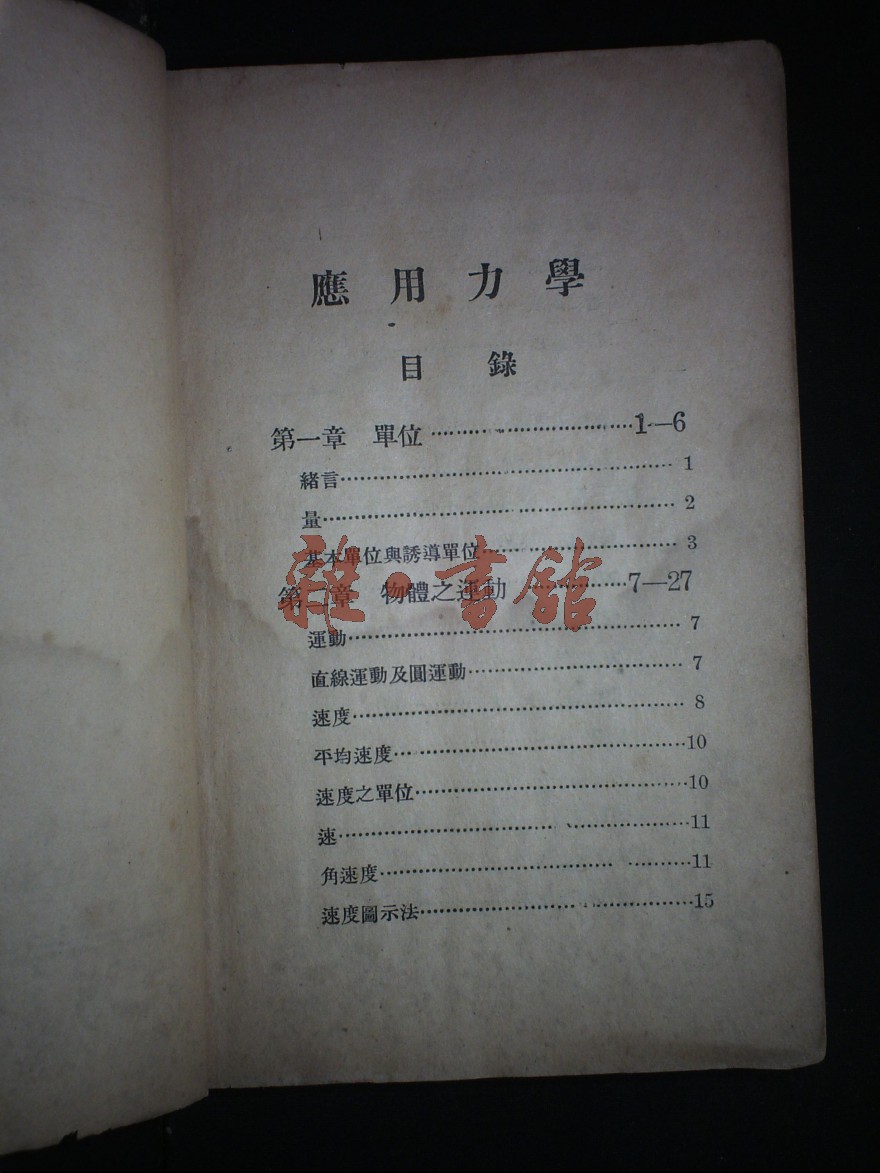 應用力學
目錄
第一章 單位……………………1—6
緒言……………………1
量……………………2
基本單位與誘導單位……………………3
第二章 物體之運動……………………7—27
雜·書館
運動……………………7
直線運動及圓運動……………………7
速度……………………8
平均速度……………………10
速度之單位……………………10
速……………………11
角速度……………………11
速度圖示法……………………15